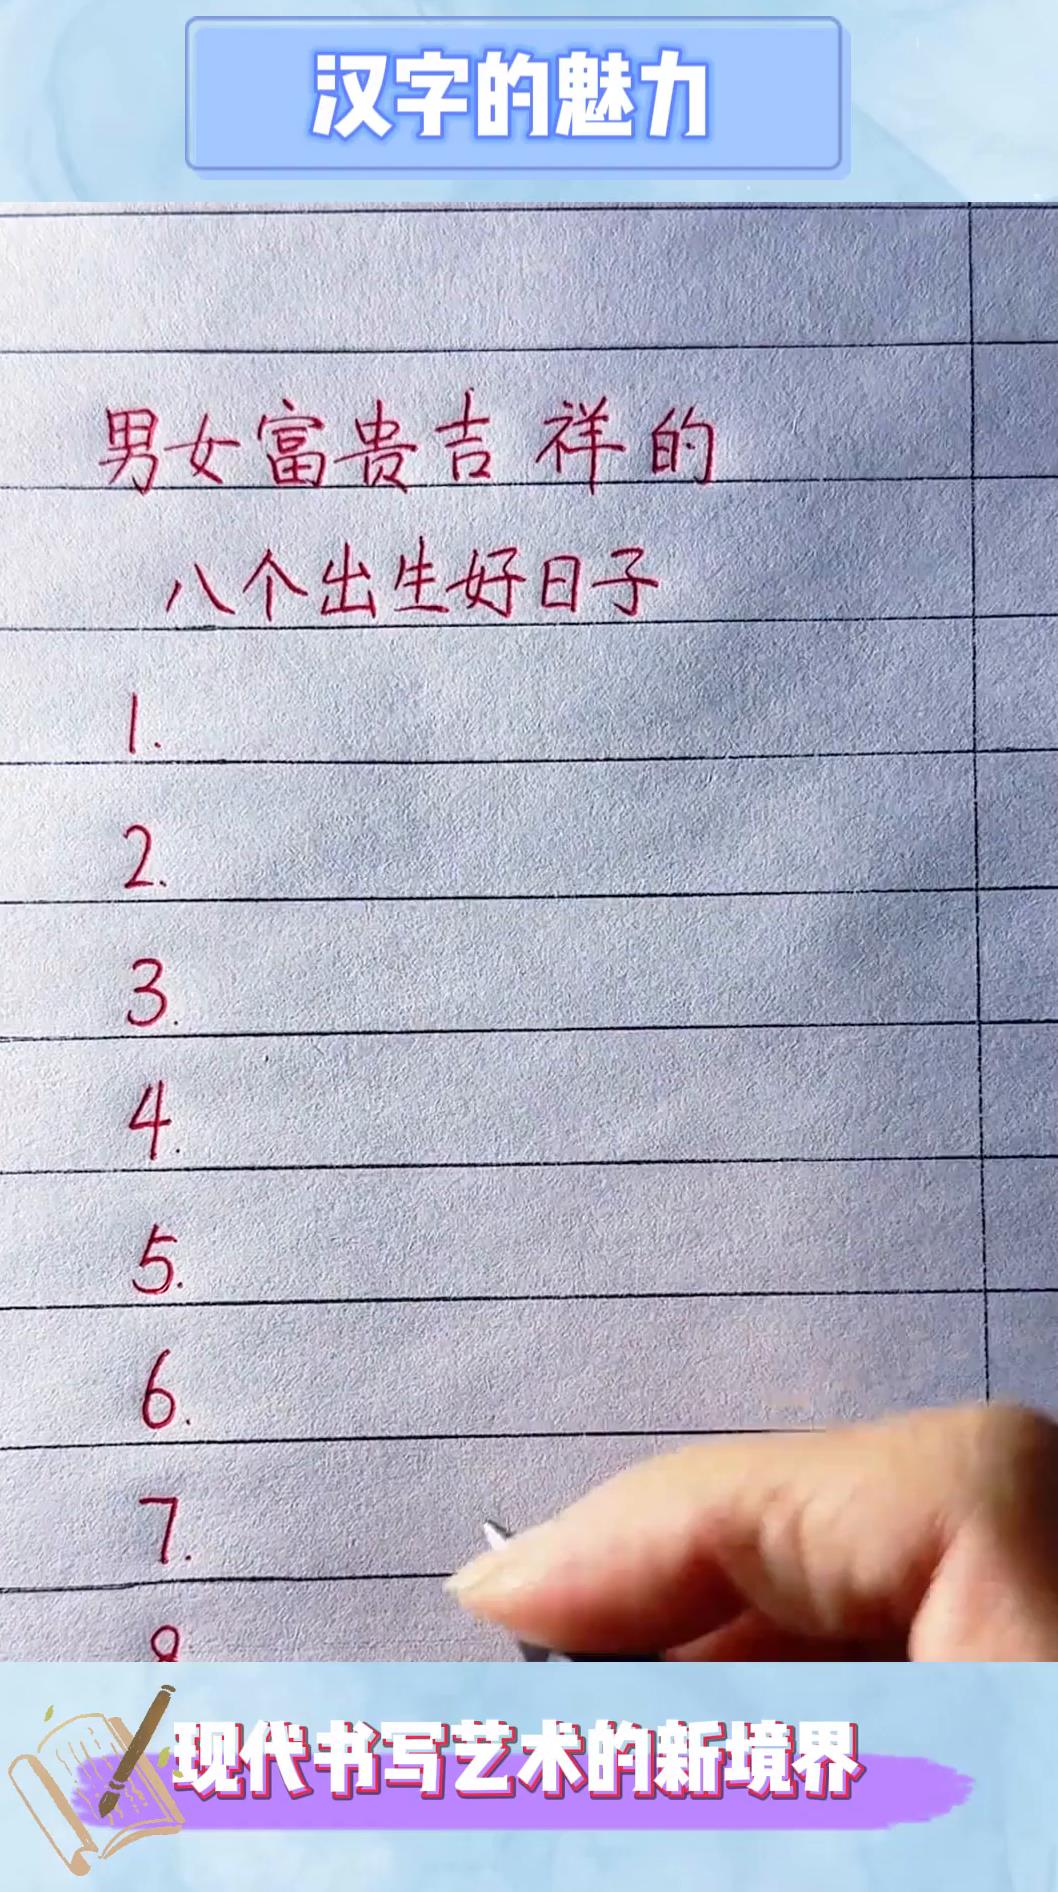 汉字的魅力
男女富贵吉祥的
八个出生好日子
1.
2.
3.
4.
5.
6.
7.
8
现代书写艺术的新境界